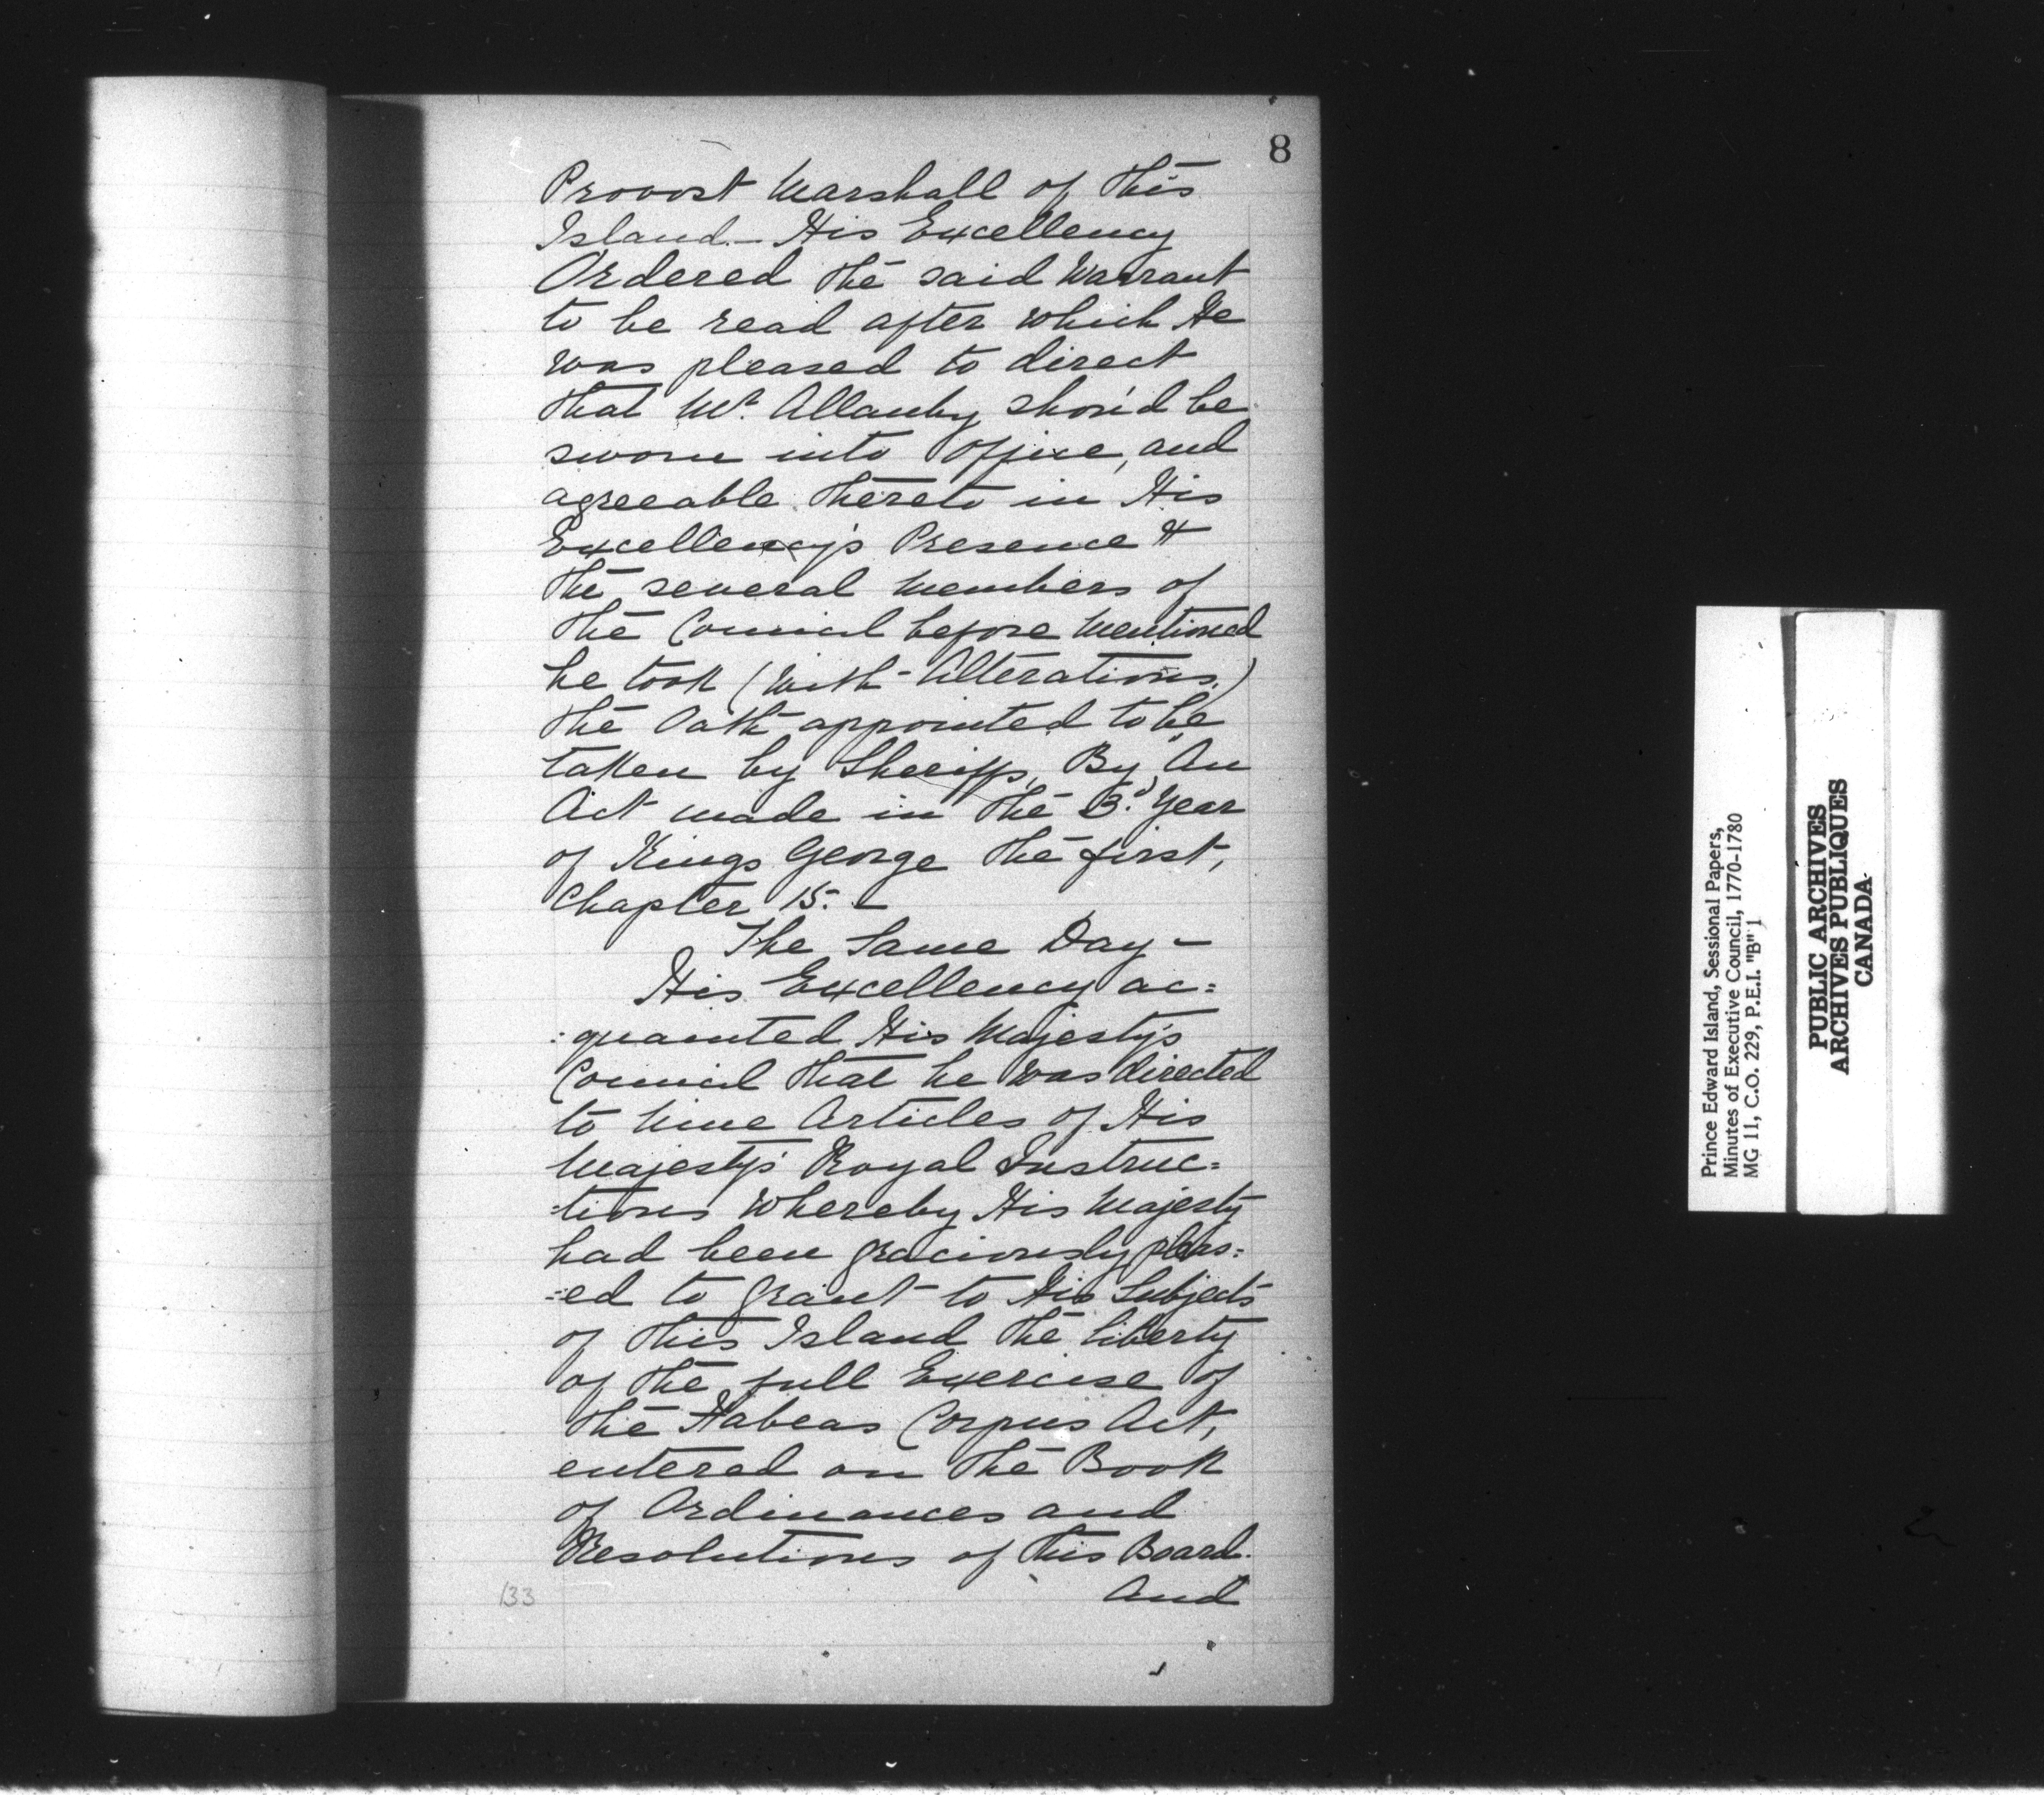 8
Provost Marshall of this
Island.- His Excellency
Ordered the said Warrant
to be read after which He
was pleased to direct
that Mr. Allanby shou'd be
sworn into Office, and
agreeable thereto in His
Excellency's Presence &
the several Members of
the Council before Mentioned
he took (with Alterations.)
the Oath appointed to be
taken by Sheriffs, By "An
Act made in the 3.d Year
of Kings George the first,
Chapter 15. -
The Same Day -
His Excellency ac=
:quainted His Majesty's
Council that he was directed
to Nine Articles of His
Majesty's Royal Instruc=
=tions whereby His Majesty
had been graciously pleas=
=ed to grant to His Subjects
of this Island the liberty
of the full Exercise of
the Habeas Corpus Act,
entered on the Book
of Ordinances and
Resolutions of this Board.
And
133
Prince Edward Island, Sessional Papers,
Minutes of Executive Council, 1770-1780
MG 11, C.O. 229, P.E.I. "B" 1
PUBLIC ARCHIVES
ARCHIVES PUBLIQUES
CANADA